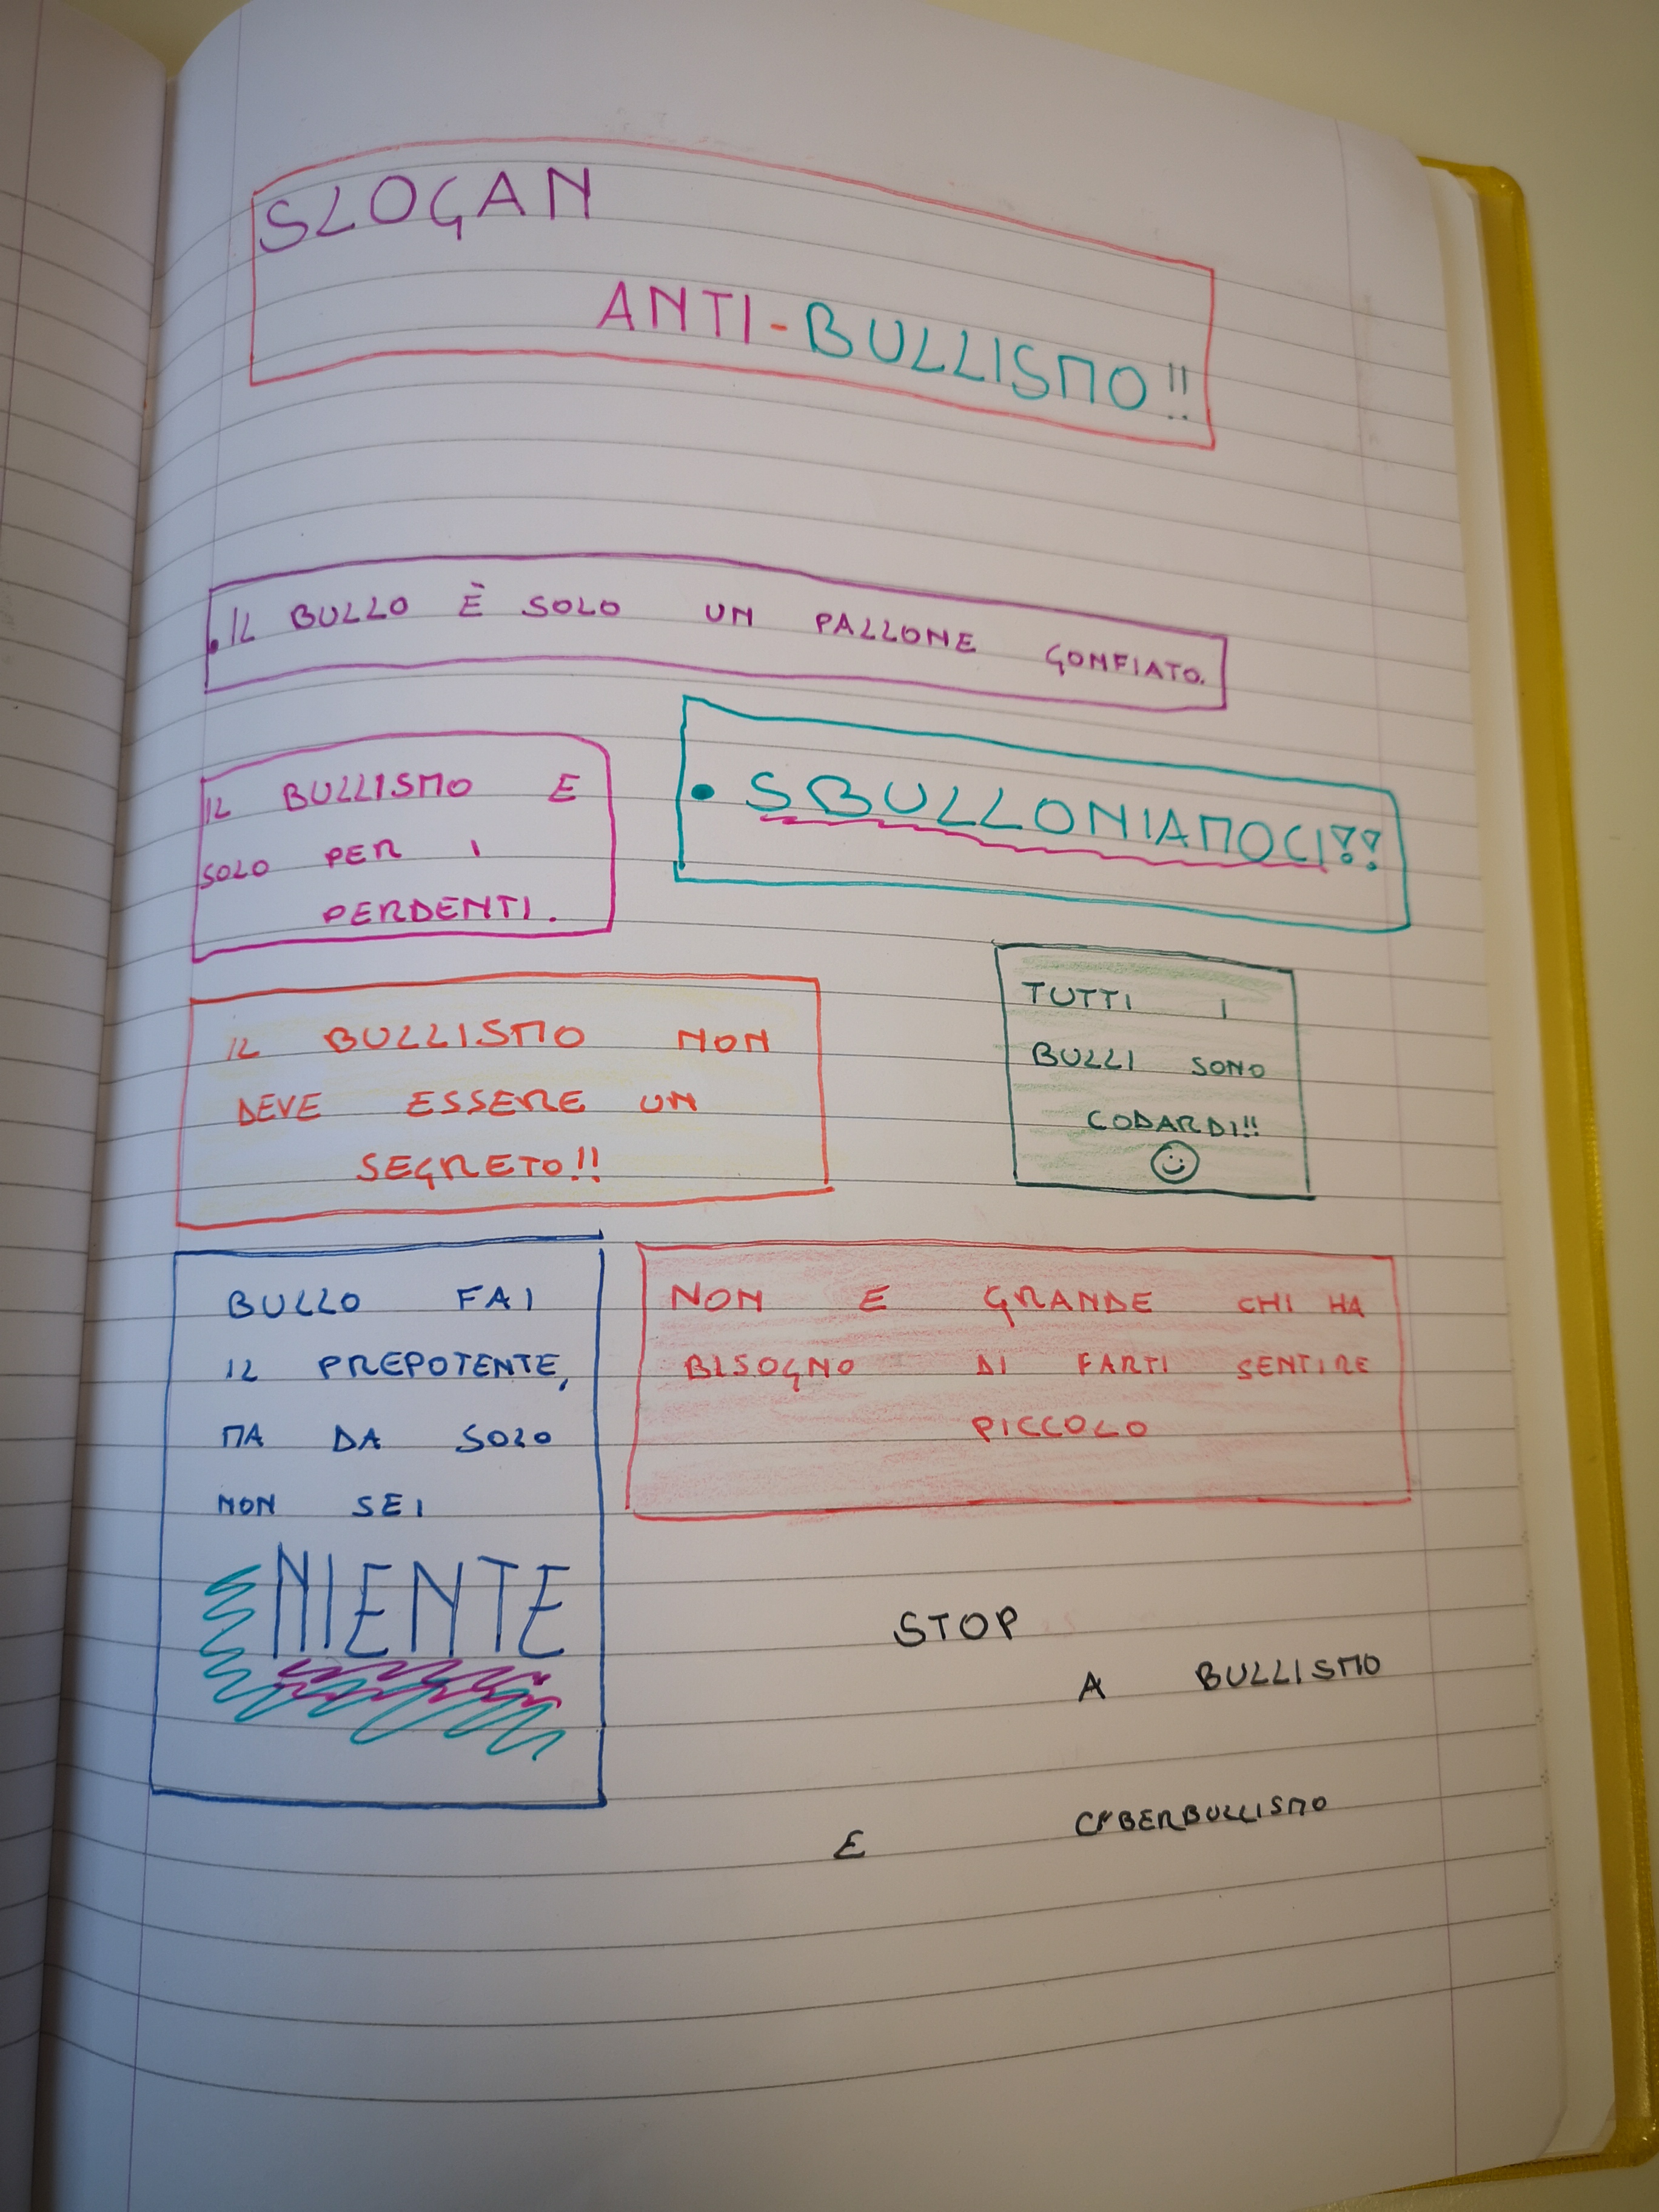 SLOGAN
ANTI-BULLISMO!!
• IL BULLO È SOLO UN PALLONE GONFIATO.
IL BULLISMO E
SOLO PER I
PERDENTI.
• SBULLONIAMOCI!!
IL BULLISMO NON
DEVE ESSERE UN
SEGRETO!!
TUTTI I
BULLI SONO
CODARDI!!
BULLO FAI
IL PREPOTENTE,
MA DA SOLO
NON SEI
NIENTE
NON E GRANDE CHI HA
BISOGNO DI FARTI SENTIRE
PICCOLO
STOP
A BULLISMO
E CYBERBULLISMO